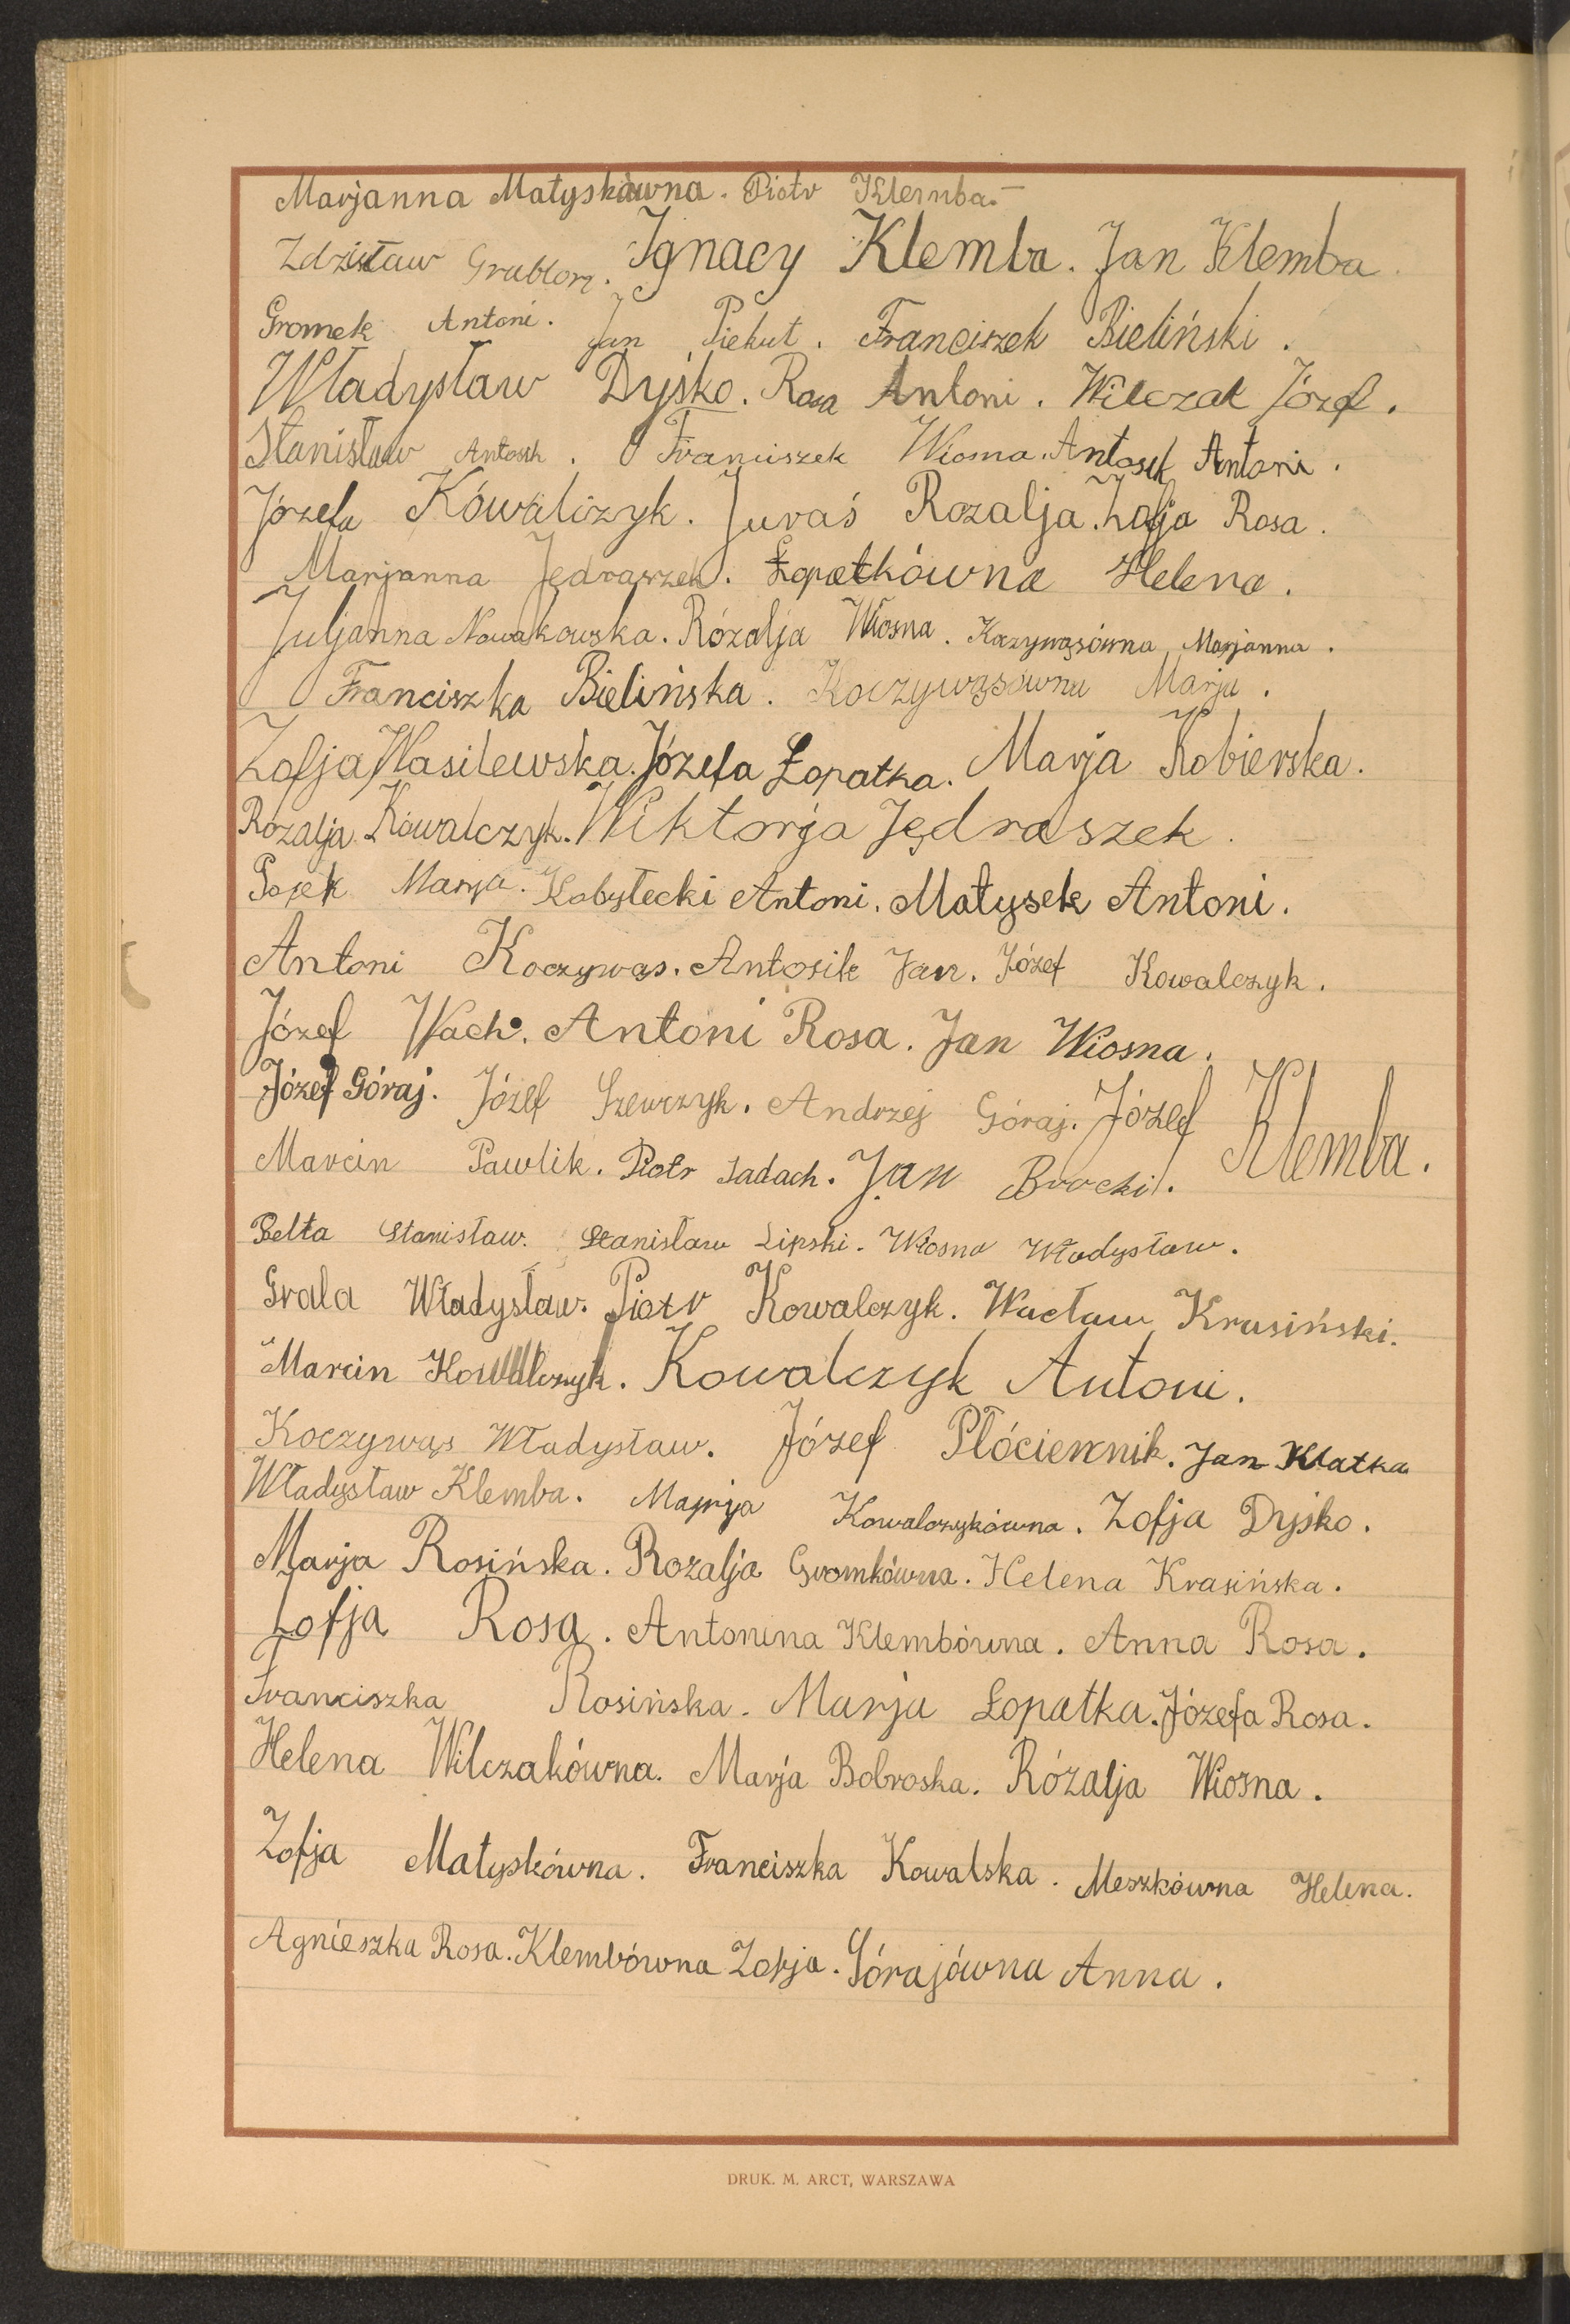 Marjanna Matyskówna. Piotr Klemba.
Zdzisław Ignacy Klemba. Jan Klemba.
Gromek Antoni. Jan Piekut. Franciszek Bieliński.
Władysław Dyśko. Rosa Antoni. Wilczak Józef.
Stanisław Antosik. Franciszek Wiosna. Antosik Antoni.
Józefa Kówalczyk. Juraś Rozalja. Zofja Rosa.
Marjanna Jędraszek. Łopatkówna Helena.
Juljanna Nowakowska. Rózalja Wiosna. Marjanna.
Franciszka Bielińska. Koczywąsówna Marja.
Zofja Wasilewska. Józefa Łopatka. Marja Kobierska.
Rozalja Kowalczyk. Wiktorja Jędraszek.
Marja. Kobyłecki Antoni. Matysek Antoni.
Antoni Koczywąs. Antosik Jan. Józef Kowalczyk.
Józef Wach. Antoni Rosa. Jan Wiosna.
Józef Góraj. Józef Szewczyk. Andrzej Góraj. Józef Klemba.
Marcin Pawlik. Piotr Sadach. Jan Brocki.
Pełta Stanisław. Stanisław Lipski. Wiosna Władysław.
Grala Władysław. Piotr Kowalczyk. Wacław Krasiński.
Marcin Kowalczyk. Kowalczyk Antoni.
Koczywąs Władysław. Józef Płóciennik. Jan Klatka
Władysław Klemba. Marja Kowalczykówna. Zofja Dyśko.
Marja Rosińska. Rozalja Gromkówna. Helena Krasińska.
Zofja Rosa. Antonina Klembówna. Anna Rosa.
Franciszka Rosińska. Marja Łopatka. Józefa Rosa.
Helena Wilczakówna. Marja Bobroska. Rózalja Wiosna.
Zofja Matyskówna. Franciszka Kowalska. Meszkówna Helena.
Agnieszka Rosa. Klembówna Zofja. Górajówna Anna.
DRUK. M. ARCT, WARSZAWA